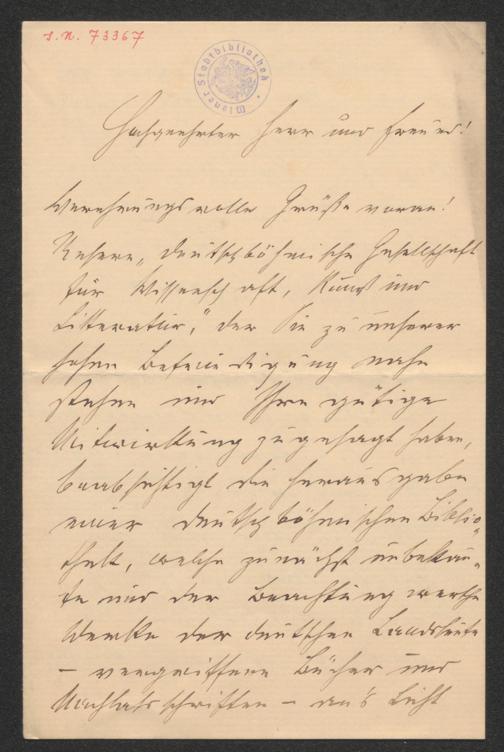 I. N. 73367
Wiener Stadtbibliothek
Hochgeehrter Herr und Freund!
Verehrungsvolle Grüße voran!
Unsere „deutschböhmische Gesellschaft
für Wissenschaft, Kunst und
Litteratur," der Sie zu unserer
hohen Befriedigung nahe
stehen und Ihre gütige
Mitwirkung zugesagt haben,
beabsichtigt die Herausgabe
einer deutschböhmischen Biblio-
thek, welche zunächst unbekan-
te und der Beachtung werthe
Werke der deutschen Landsleute
– vergriffene Bücher und
Nachlaßschriften – an's Licht